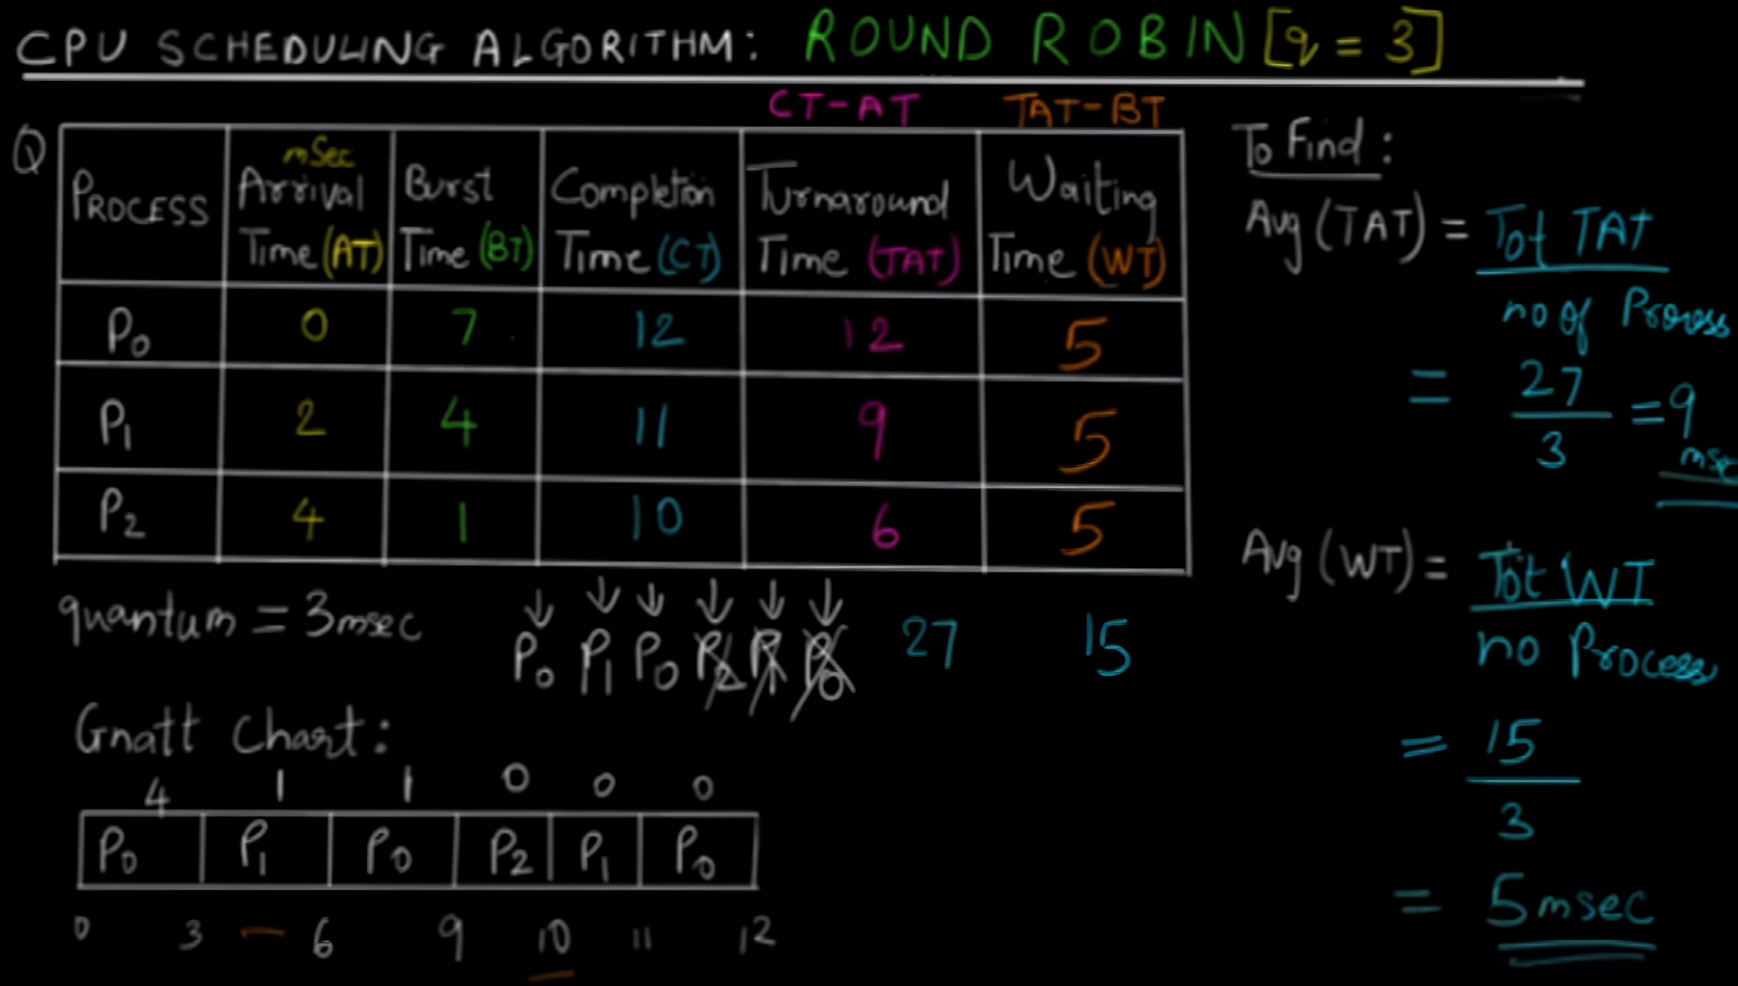 CPU SCHEDULING ALGORITHM: ROUND ROBIN [q = 3]
CT-AT TAT-BT
Q
PROCESS mSec Arrival Time (AT) Burst Time (BT) Completion Time (CT) Turnaround Time (TAT) Waiting Time (WT)
P0 0 7 12 12 5
P1 2 4 11 9 5
P2 4 1 10 6 5
quantum = 3msec
P0 P1 P0 P2 P1 P0 27 15
Gnatt Chart:
4 1 1 0 0 0
P0 P1 P0 P2 P1 P0
0 3 6 9 10 11 12
To Find:
Avg (TAT) = Tot TAT
no of Process
= 27
3
= 9
msec
Avg (WT) = Tot WT
no Process
= 15
3
= 5msec